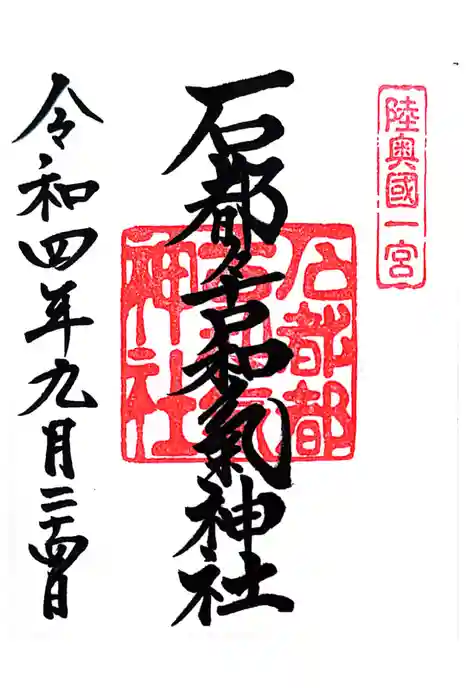 陸奥國一宮
石都々古和氣神社
石都都古和氣神社
令和四年九月二十四日